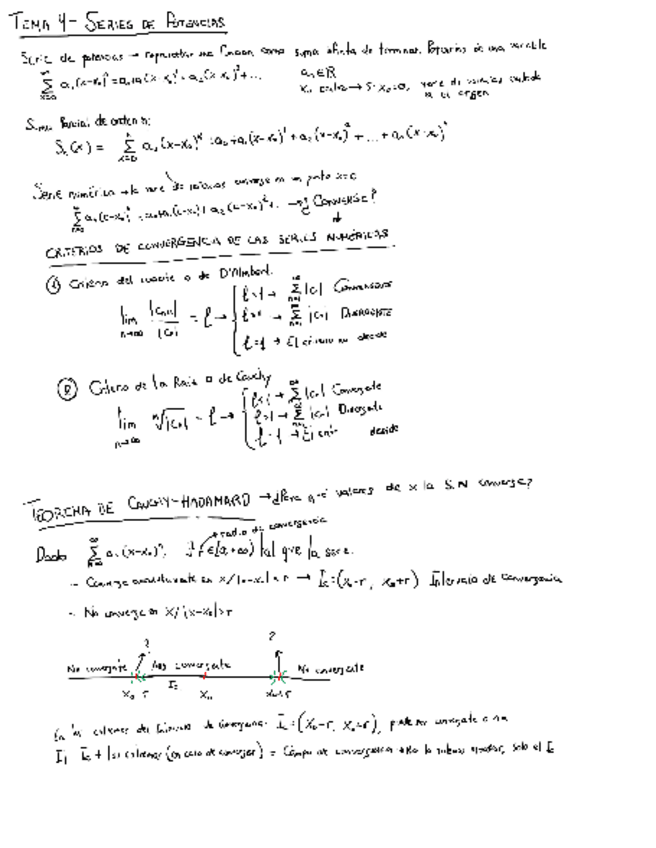 TEMA 4 - SERIES DE POTENCIAS
Serie de potencias → representar una función como suma infinita de terminos Potencias de una variable
∑ aₙ(x-x₀)ⁿ = a₀ + a₁(x-x₀)¹ + a₂(x-x₀)² + ... aₙ ∈ ℝ
x₀ centro → Si x₀=0, serie de potencias centrada
en el origen
Suma Parcial de orden n:
Sₙ(x) = ∑ aₖ(x-x₀)ᵏ = a₀ + a₁(x-x₀)¹ + a₂(x-x₀)² + ... + aₙ(x-x₀)ⁿ
Serie numérica → la serie de potencias converge en un punto x=c
∑ aₙ(c-x₀)ⁿ = a₀ + a₁(c-x₀) + a₂(c-x₀)² + ... → ¿CONVERGE?
↓
CRITERIOS DE CONVERGENCIA DE LAS SERIES NUMÉRICAS
① Criterio del cociente o de D'Alembert.
l<1 → ∑ |cₙ| CONVERGENTE
lim n→∞ |cₙ₊₁| / |cₙ| = l → l>1 → ∑ |cₙ| DIVERGENTE
l=1 → El criterio no decide
② Criterio de la Raiz o de Cauchy
l<1 → ∑ |cₙ| Convergente
lim n→∞ ⁿ√|cₙ| = l → l>1 → ∑ |cₙ| Divergente
l=1 → El criterio decide
TEOREMA DE CAUCHY-HADAMARD → ¿Para qué valores de x la S.N converge?
→ radio de convergencia
Dada ∑ aₙ(x-x₀)ⁿ, ∃ r ∈ [0,+∞) tal que la serie:
- Converge absolutamente en x/|x-x₀|<r → Ic=(x₀-r, x₀+r) Intervalo de convergencia
- No converge en x/|x-x₀|>r
? ?
No convergente Abs convergente No convergente
Ic
x₀-r x₀ x₀+r
En los extremos del intervalo de convergencia Ic=(x₀-r, x₀+r), puede ser convergente o no
Ic + los extremos (en caso de converger) = Campo de convergencia → No lo vamos a estudiar, solo el Ic